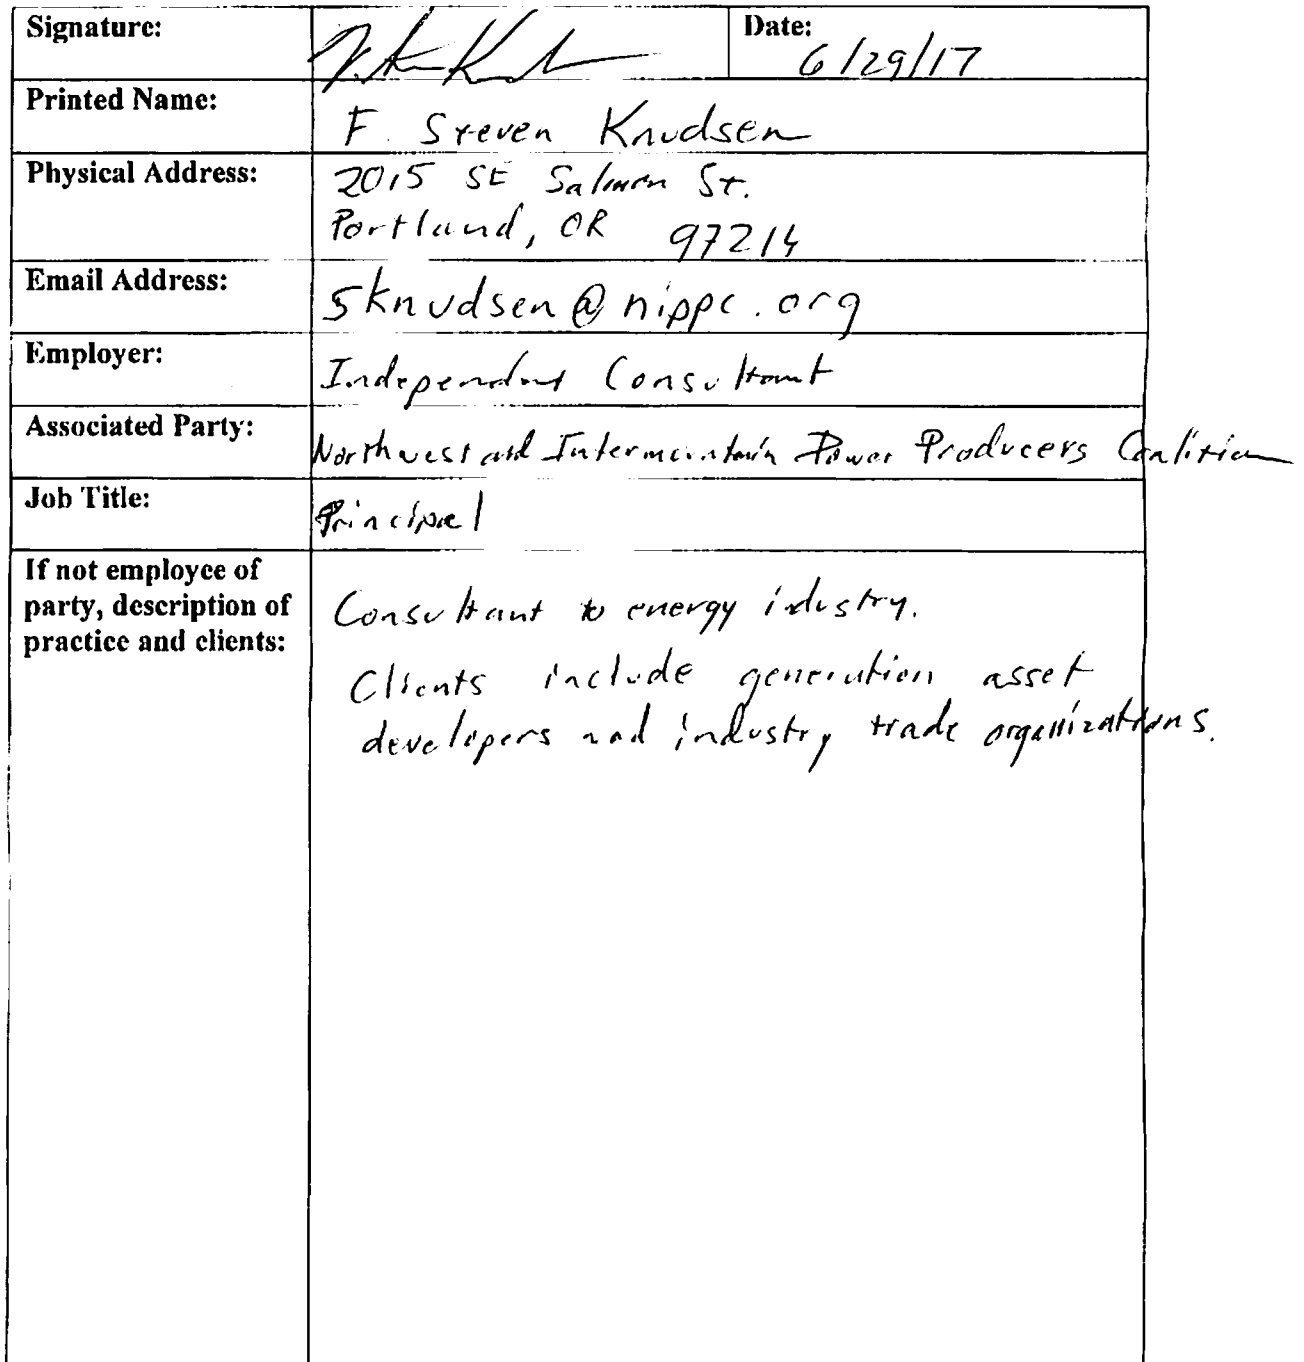 Signature:
Date:
6/29/17
Printed Name:
F. Steven Knudsen
Physical Address:
2015 SE Salmon St.
Portland, OR 97214
Email Address:
sknudsen@nippc.org
Employer:
Independent Consultant
Associated Party:
Northwest and Intermountain Power Producers Coalition
Job Title:
Principal
If not employee of
party, description of
practice and clients:
Consultant to energy industry.
Clients include generation asset
developers and industry trade organizations.